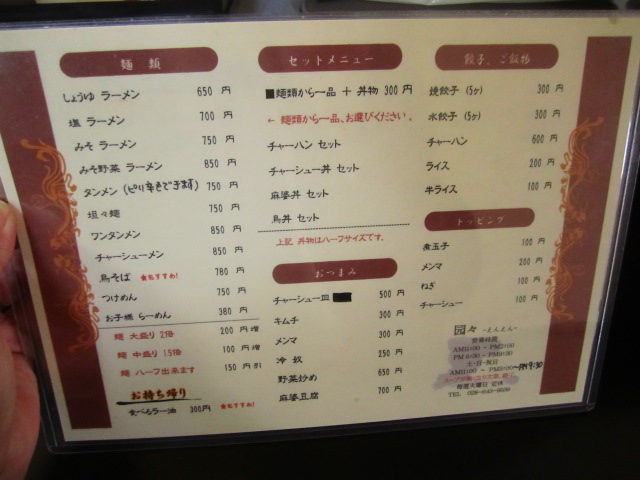 麺 類
しょうゆ ラーメン 650 円
塩 ラーメン 700 円
みそ ラーメン 750 円
みそ野菜 ラーメン 850 円
タンメン (ピリ辛きできます) 750 円
坦々麺 750 円
ワンタンメン 850 円
チャーシューメン 850 円
鳥そば ★おすすめ! 780 円
つけめん 750 円
お子様 らーめん 380 円
麺 大盛り 2倍 200 円 増
麺 中盛り 1.5倍 100 円 増
麺 ハーフ出来ます 150 円 引
お持ち帰り
食べるラー油 300円 ★おすすめ!
セットメニュー
■麺類から一品 + 丼物 300 円
← 麺類から一品、お選びください。
チャーハン セット
チャーシュー丼 セット
麻婆丼 セット
鳥丼 セット
上記 丼物はハーフサイズです。
おつまみ
チャーシュー皿 500 円
キムチ 300 円
メンマ 300 円
冷 奴 250 円
野菜炒め 650 円
麻婆豆腐 700 円
餃子、ご飯物
焼餃子 (5ヶ) 300 円
水餃子 (5ヶ) 300 円
チャーハン 600 円
ライス 200 円
半ライス 100 円
トッピング
煮玉子 100 円
メンマ 200 円
ねぎ 100 円
チャーシュー 100 円
園々 -えんえん-
営業時間
AM11:00 ~ PM2:00
PM 5:30 ~ PM9:30
土・日・祝日
AM11:00 ~ PM3:00 ~PM9:30
スープが無くなり次第、終了。
毎週火曜日 定休